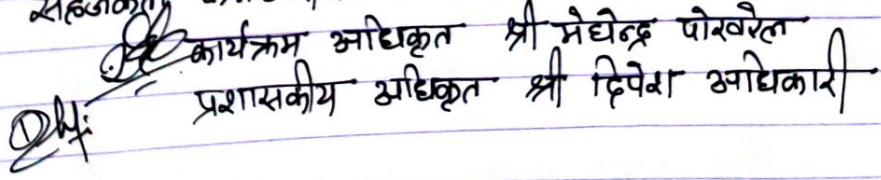 कार्यक्रम अधिकृत श्री मेघेन्द्र पोखरेल
प्रशासकीय अधिकृत श्री दिपेश अधिकारी